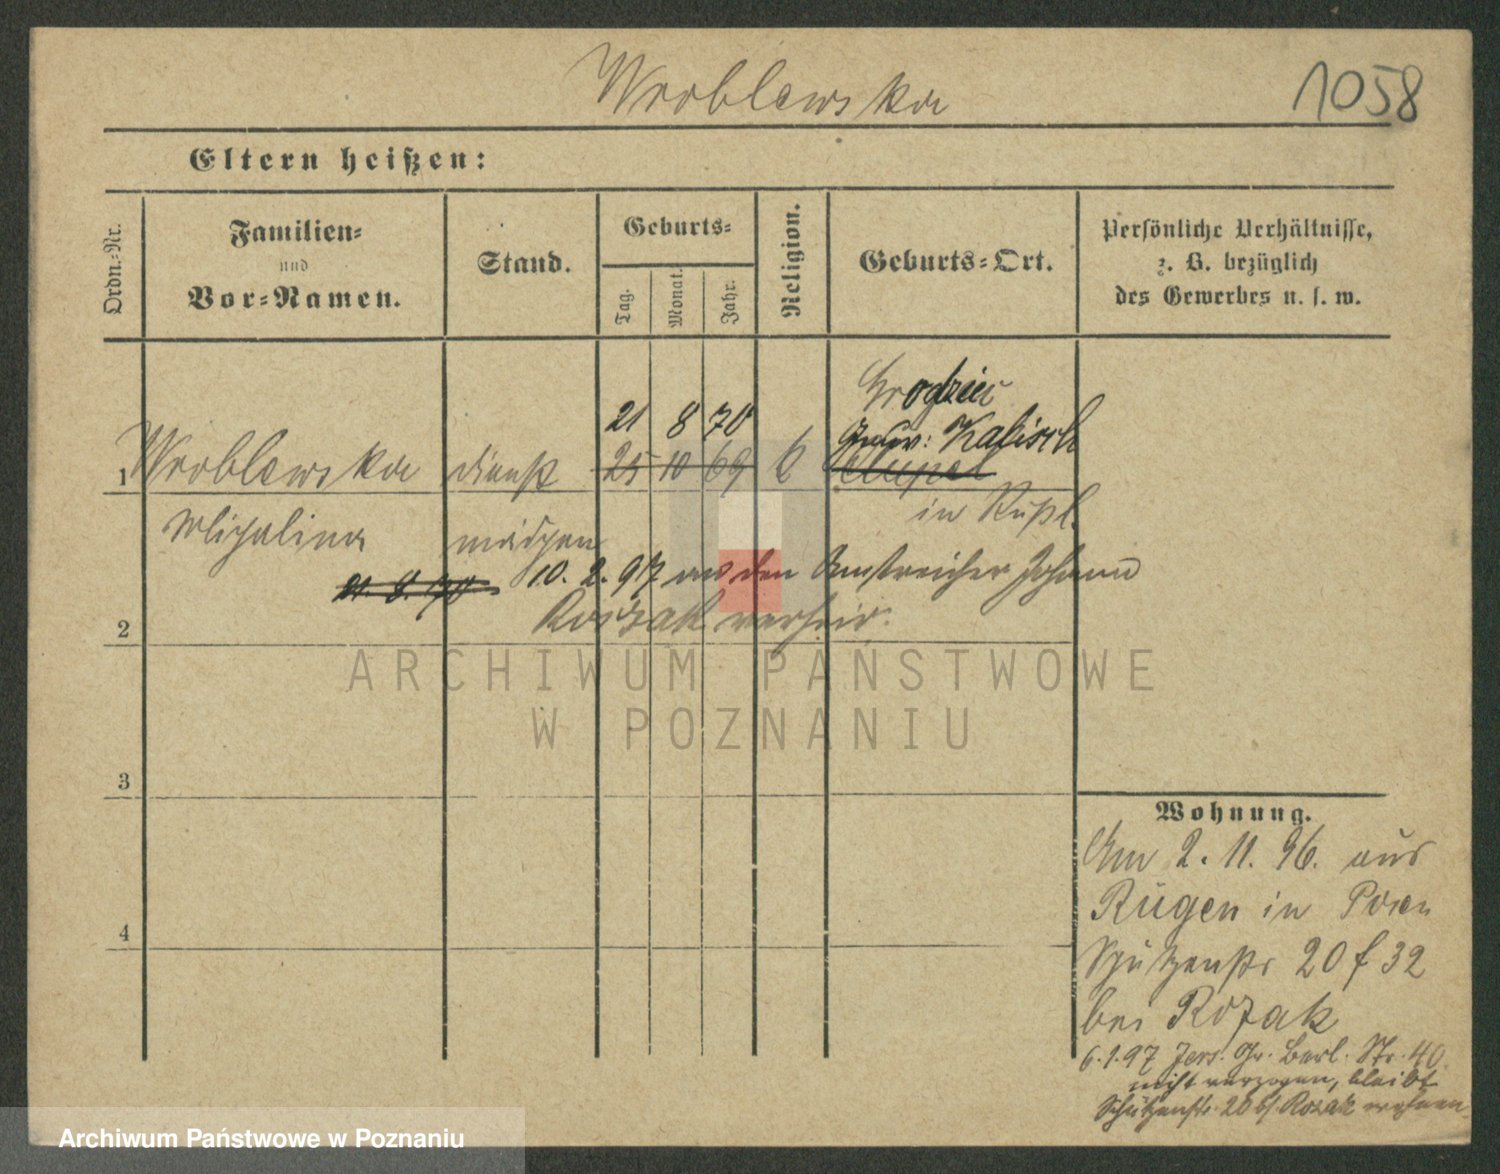 Wroblewska
1058
Eltern heißen:
Ordn.-Nr.
Familien-
und
Vor-Namen.
Stand.
Geburts-
Tag.
Monat.
Jahr.
Religion.
Geburts-Ort.
Persönliche Verhältnisse,
z. B. bezüglich
des Gewerbes u. s. w.
Grodziec
21 8 70
Gouv: Kalisch
1 Wroblewska dienst 25 10 69
in Rußl.
Michalina mädchen
21. 8. 70 10. 2. 97 den Anstreicher Johann
Roszak verheir.
2
ARCHIWUM PAŃSTWOWE
W POZNANIU
3
Wohnung.
Am 2. 11. 96. aus
Rügen in Posen
4
Schützenstr 20 f 32
bei Rozak
6.1.97 Jers. Gr. Berl. Str. 40
nicht verzogen, bleibt
Schützenstr. 20 b/ Rozak wohnen
Archiwum Państwowe w Poznaniu